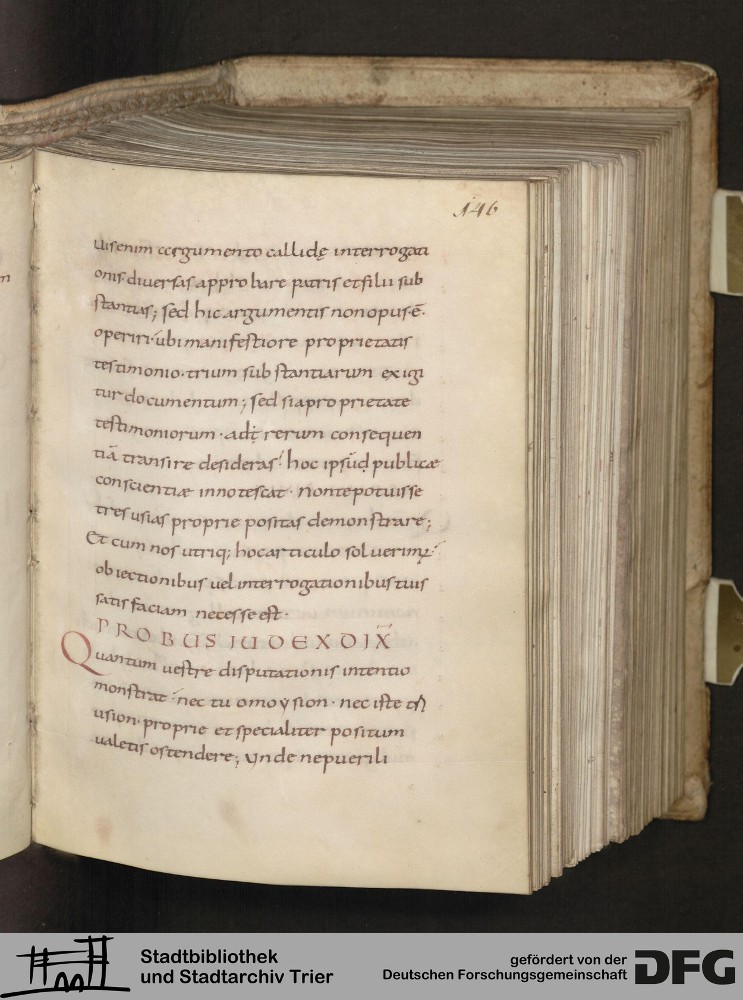 146
uis enim argumento callidę interrogati
onis diuersas approbare patris et filii sub
stantias; sed hic argumentis non opus·ē·
operiri· ubi manifestiore proprietatis
testimonio· trium substantiarum exigi
tur documentum; sed si a proprietate
testimoniorum· ad rerum consequen
tiā transire desideras· hoc ipsū publicæ
conscientiæ innotescat· non te potuisse
tres usias proprie positas demonstrare;
Et cum nos utriq; hoc articulo soluerim;
obiectionibus uel interrogationibus tuis
satisfaciam necesse est·
PROBUS IUDEX DIX̄
Quantum uestre disputationis intentio
monstrat· nec tu omoysion· nec iste
usion· proprie et specialiter positum
ualetis ostendere; Unde ne puerili
m
Stadtbibliothek
und Stadtarchiv Trier
gefördert von der
Deutschen Forschungsgemeinschaft
DFG